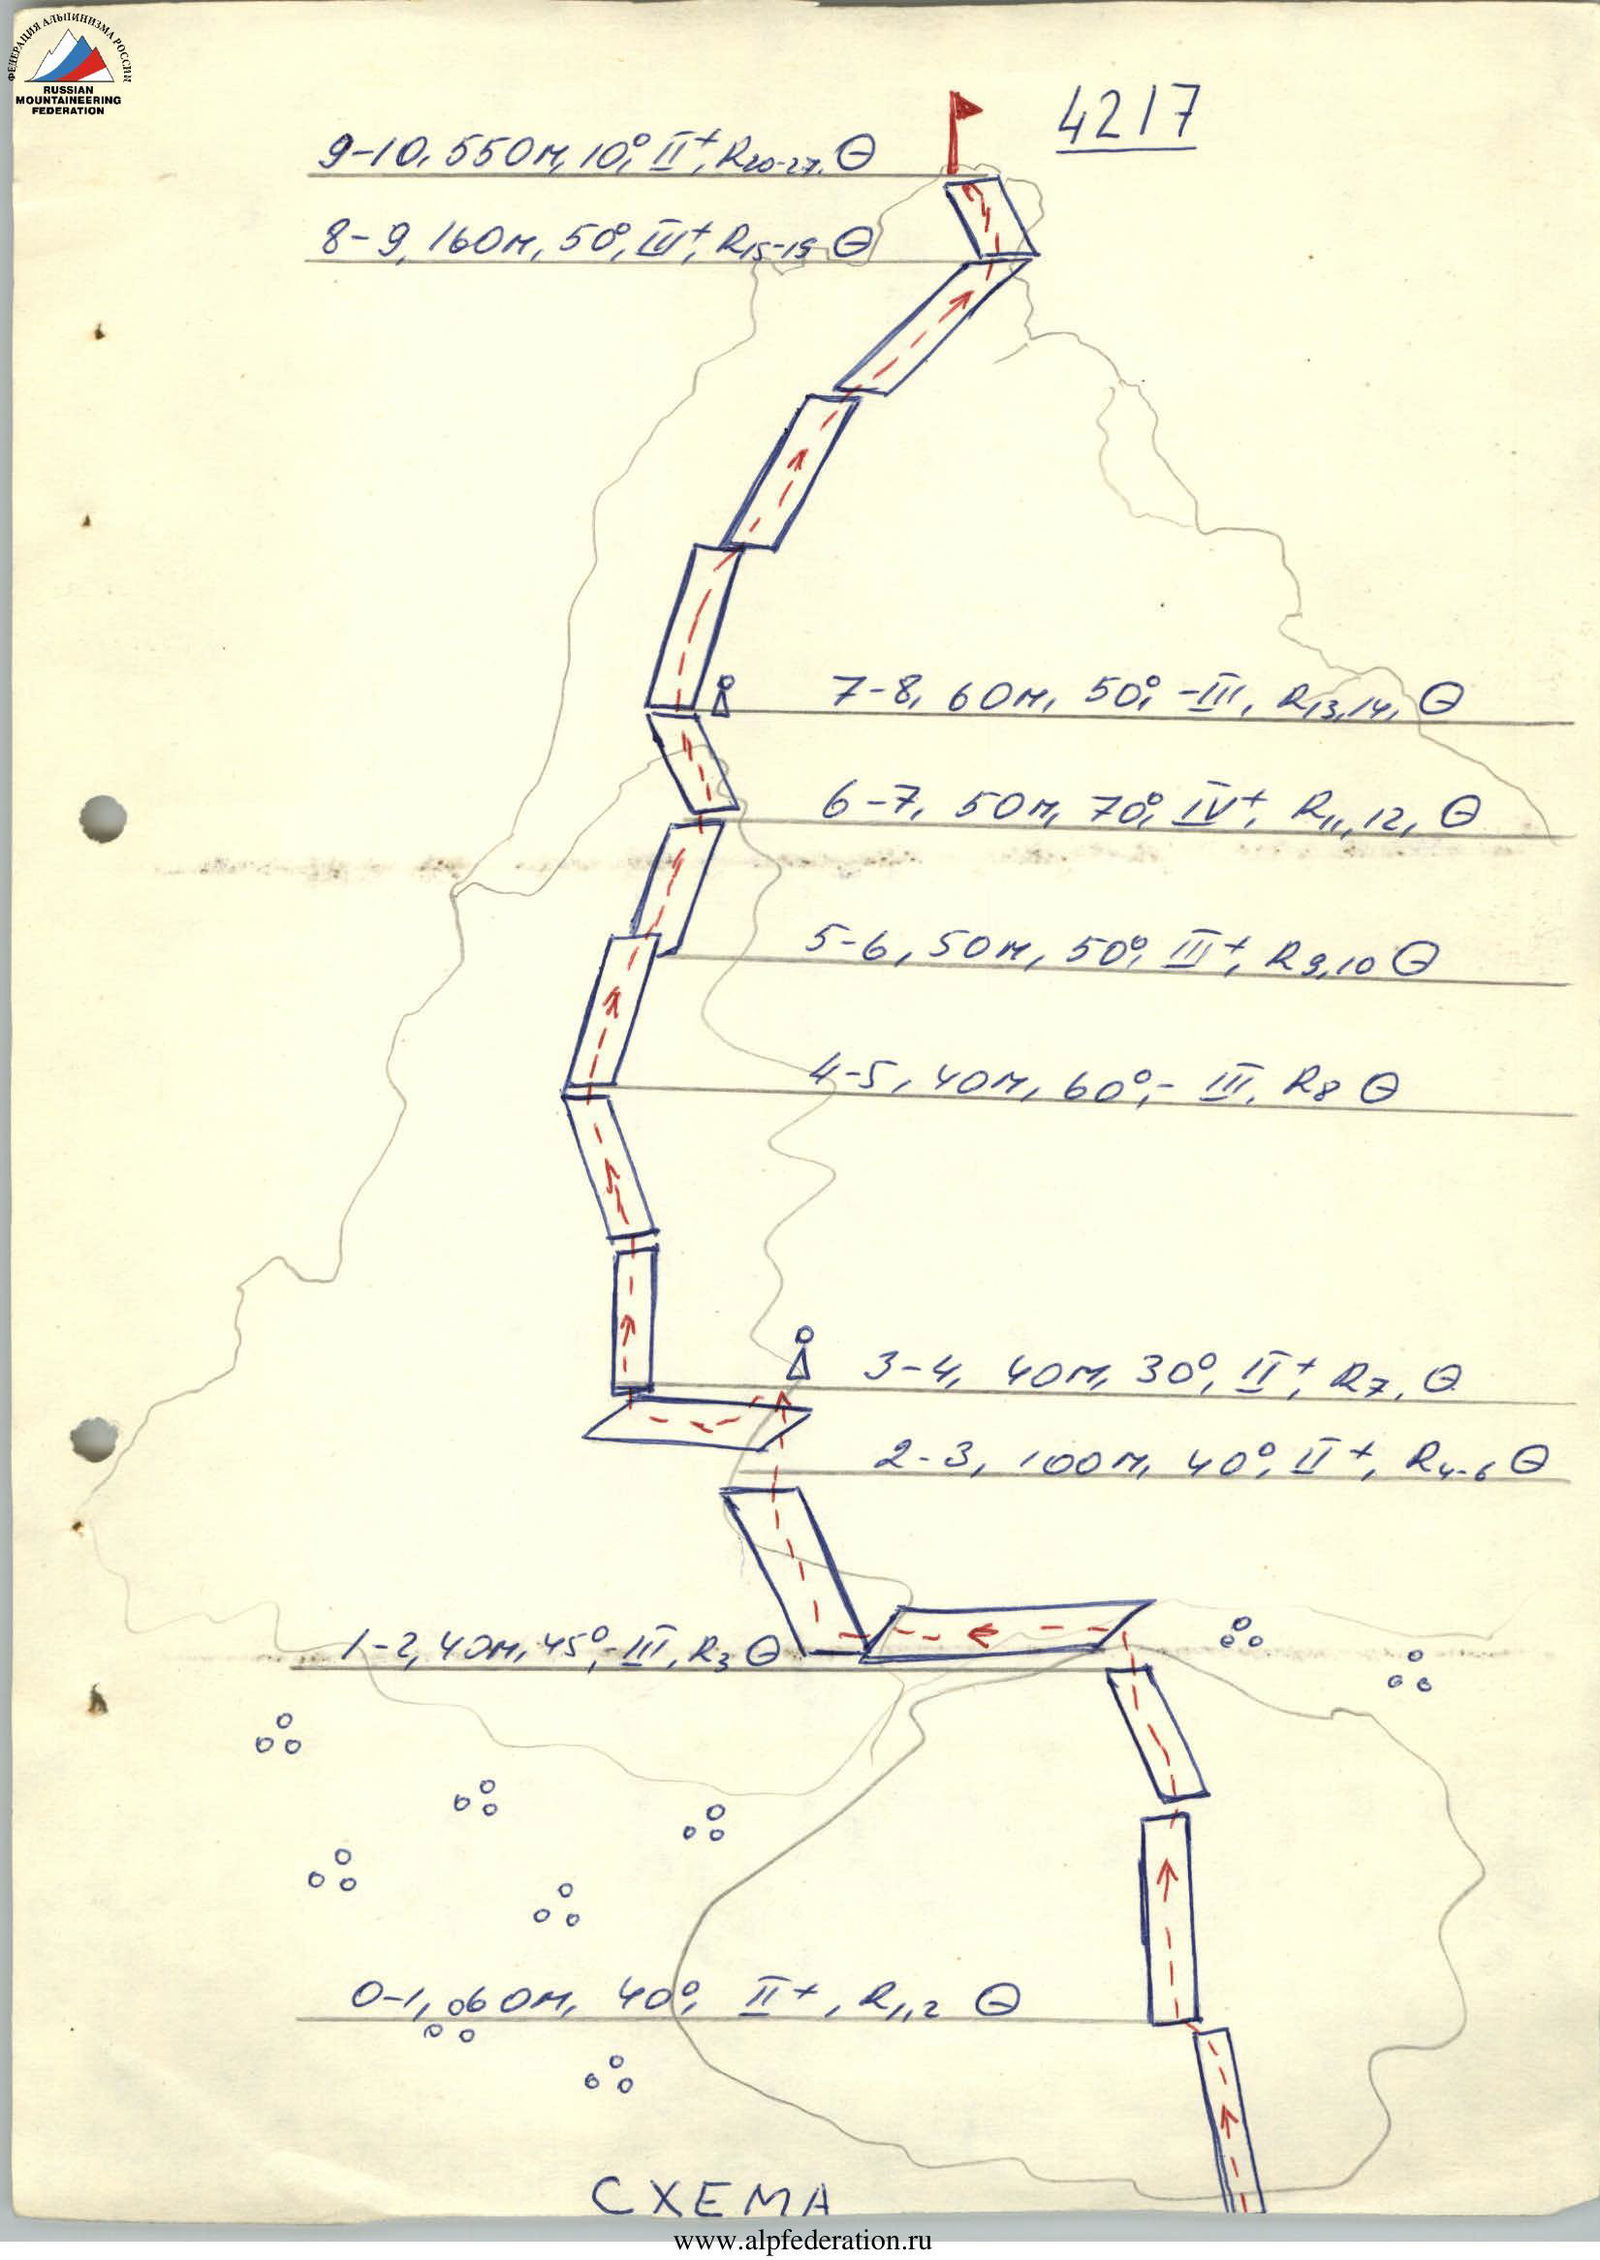 ФЕДЕРАЦИЯ АЛЬПИНИЗМА РОССИИ
RUSSIAN
MOUNTAINEERING
FEDERATION
4217
9-10, 550м, 10°, II+, R20-27, ⊖
8-9, 160м, 50°, III+, R15-19 ⊖
7-8, 60м, 50°, -III, R13,14, ⊖
6-7, 50м, 70°, IV+, R11,12, ⊖
5-6, 50м, 50°, III+, R9,10 ⊖
4-5, 40м, 60°, - III, R8 ⊖
3-4, 40м, 30°, II+, R7, ⊖
2-3, 100м, 40°, II+, R4-6 ⊖
1-2, 40м, 45°, -III, R3 ⊖
0-1, 60м, 40°, II+, R1,2 ⊖
СХЕМА
www.alpfederation.ru